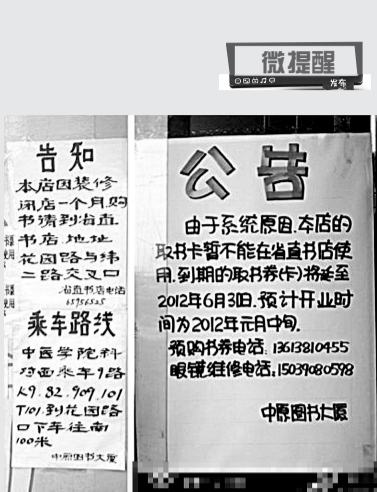 微提醒
发布
告知
本店因装修
闭店一个月.购
书请到省直
书店.地址
花园路与纬
二路交叉口
省直书店电话
65956525
乘车路线
中医学院科
对面乘车9路
K9.82.909.101
T101.到花园路
口下车往南
100米
中原图书大厦
公告
由于系统原因.本店的
取书卡暂不能在省直书店使
用.到期的取书券(卡)将延至
2012年6月3日.预计开业时
间为2012年元月中旬.
预购书券电话:13613810455
眼镜维修电话:15039080598
中原图书大厦